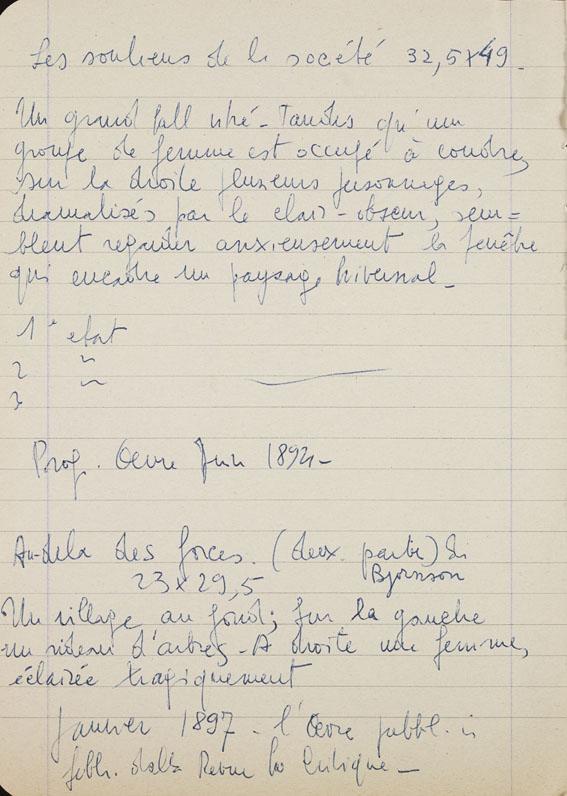 Les soutiens de la société 32,5x49 -
Un grand hall vitré - Tandis qu'un
groupe de femme est occupé à coudre,
sur la droite plusieurs personnages,
dramatisés par le clair-obscur, sem=
blent regarder anxieusement la fenêtre
qui encadre un paysage hivernal -
1° etat
2 "
3 "
Prog. Oevre Juin 1894 -
Au-dela des forces. (deux. partie) di
23 x 29,5 Bjornson
Un village au fond; sur la gauche
un rideau d'arbres - A droite une femme,
éclairée tragiquement
Janvier 1897 - l'Œvre pubbl. in
febb. dalla Revue La Critique -